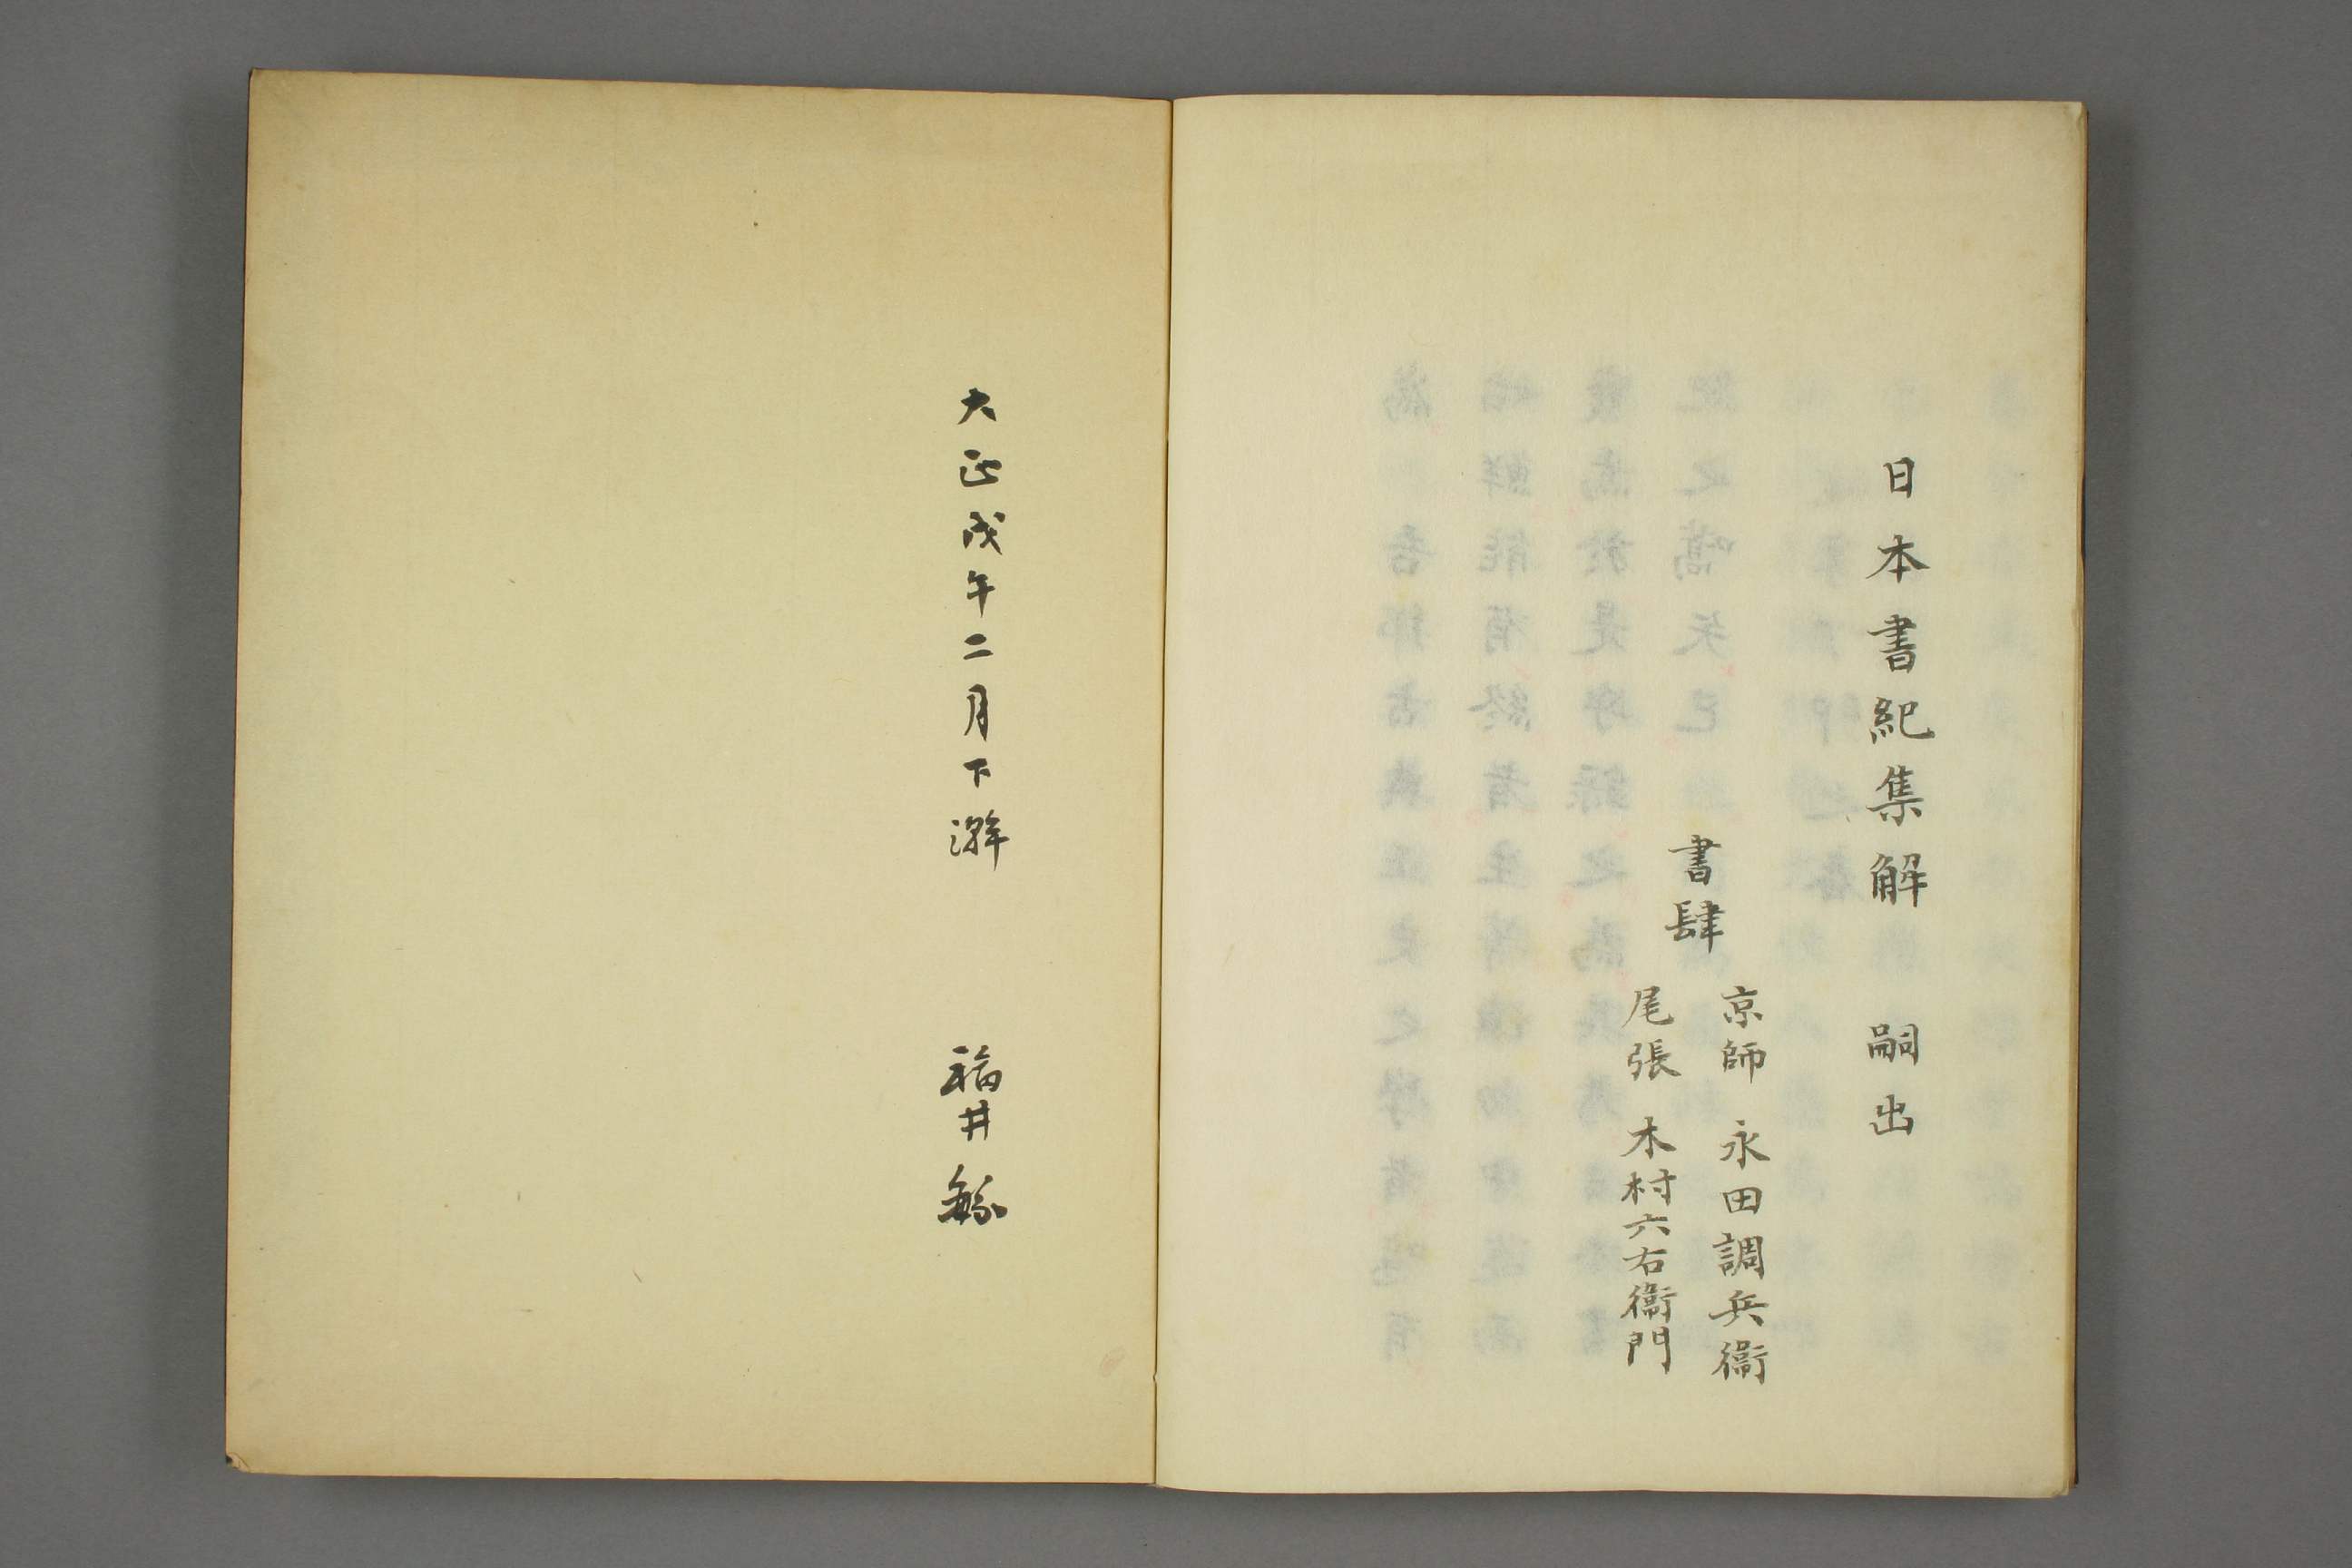 日本書紀集解 嗣出
書肆
京師 永田調兵衞
尾張 木村六右衞門
大正戊午二月下澣 福井